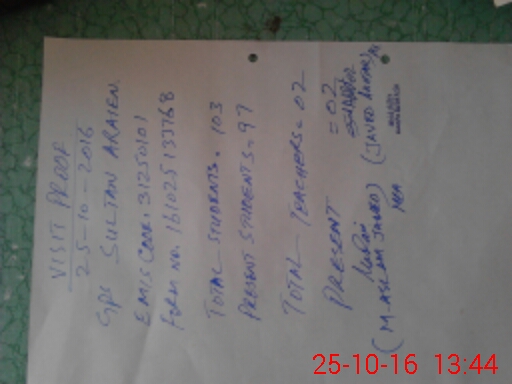 VISIT PROOF
25-10-2016
GPS SULTAN ARAIEN
EMIS CODE. 31250101
FORM NO.
TOTAL STUDENTS. 103
PRESENT STUDENTS. 97
TOTAL TEACHERS. 02
PRESENT = 02
(M. ASLAM JAVED) (JAVED
MEA
25-10-16 13:44